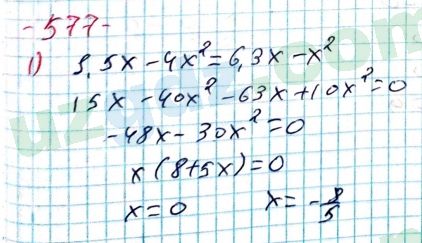 -577-
1) 1,5x - 4x² = 6,3x - x²
15x - 40x² - 63x + 10x² = 0
-48x - 30x² = 0
x(8+5x) = 0
x = 0 x = -8/5